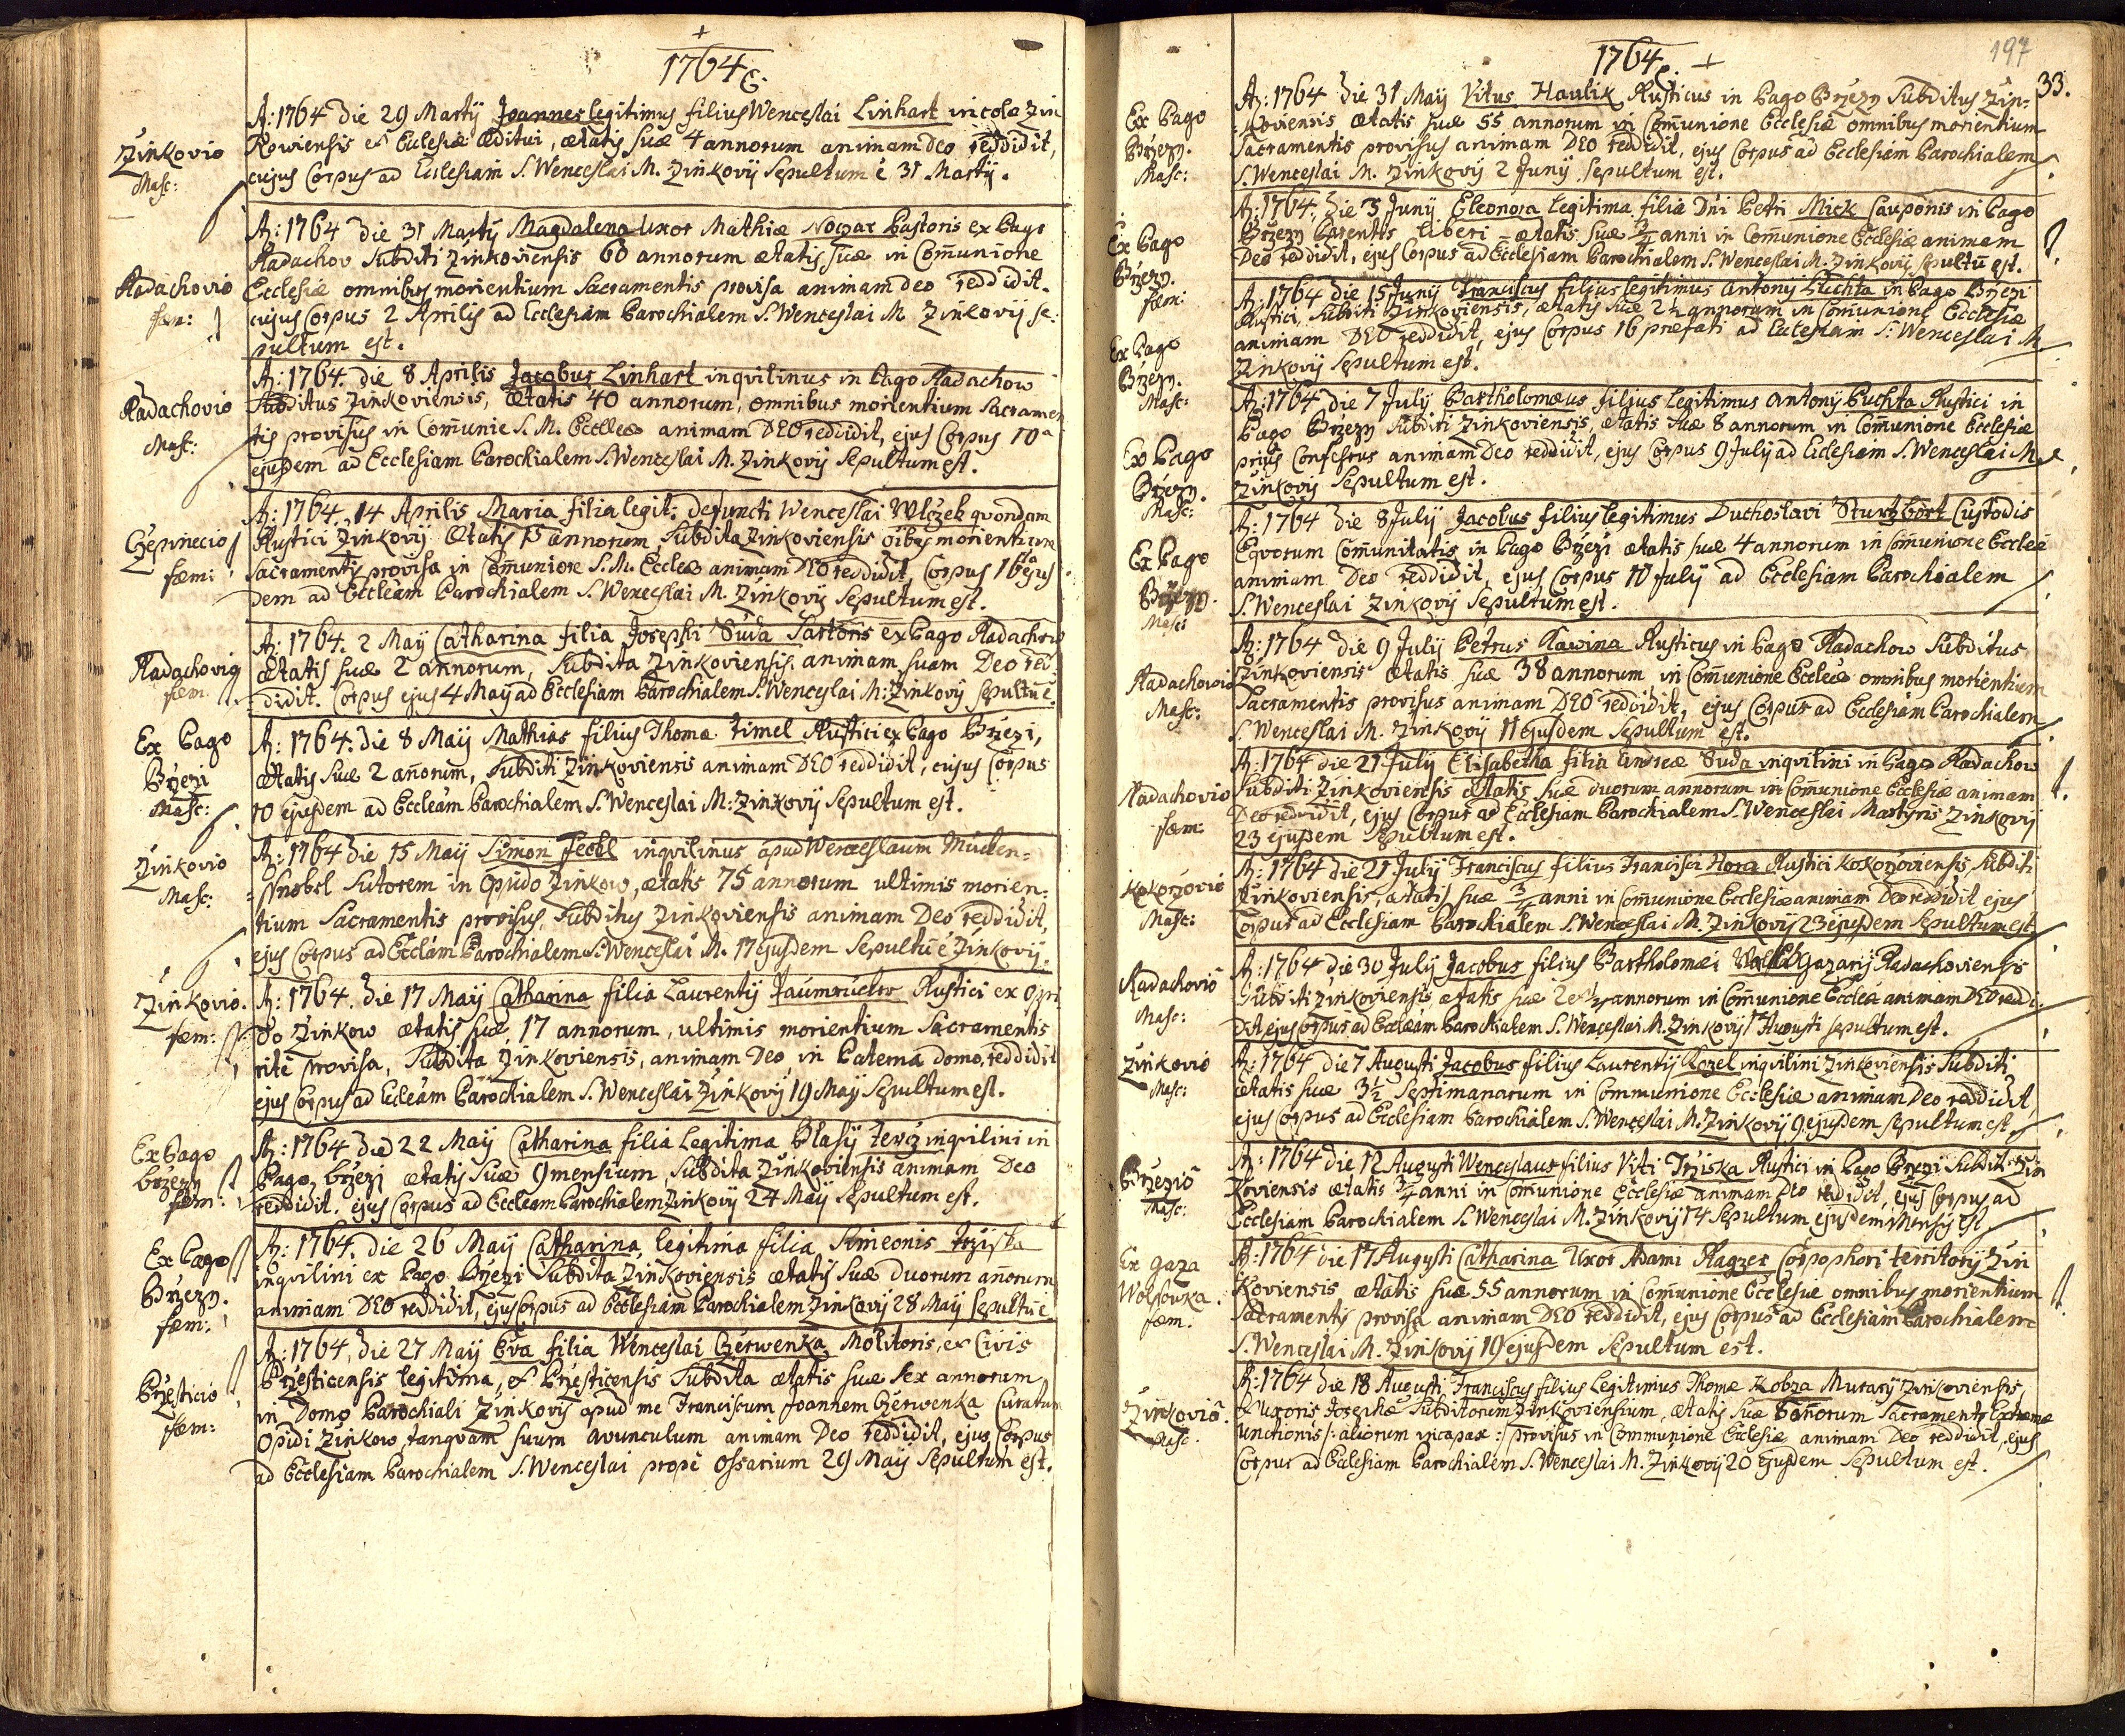 +
1764
Zinkovio
Masc:
A: 1764 Die 29 Martÿ Joannes legitimus filius Wenceslai Linhart incolæ Zin
Kowiensis et Eclesiæ Æditui, ætatis suæ 4 annorum animam Deo reddidit,
cujus Corpus ad Ecclesiam S. Wenceslai M. Zinkovÿ Sepultum ë 31 Martÿ.
Radachovio
fæm:
A: 1764 die 31 Martÿ Magdalena uxor Mathiæ Noczar Pastoris ex Pago
Radachov Subditi Zinkoviensis 60 annorum ætatis suæ in Com̄unione
Ecclesiæ omnibus morientium Sacramentis provisa animam deo reddidit.
cujus Corpus 2 Aprilis ad Ecclesiam Parochialem S. Wenceslai M. Zinkovÿ se=
pultum est.
Radachovio
Masc:
A: 1764. die 8 Aprilis Jacobus Linhart inqvilinus in Pago Radachow
Subditus Zinkoviensis, Ætatis 40 annorum, omnibus morientium Sacramen
tis provisus in Com̄unie S. M. Eccleæ animam DEO reddidit, ejus Corpus 10a
ejusdem ad Ecclesiam Parochialem S. Wenceslai M. Zinkovÿ Sepultum est.
Czepinecio
fæm:
A: 1764. 14 Aprilis Maria filia legit: defuncti Wenceslai Wlczek qvondam
Rustici Zinkovÿ Ætatis 15 annorum, Subdita Zinkoviensis oībus morientium
Sacramentis provisa in Com̄unione S. M. Eccleæ animam DEO reddidit, Corpus 16ta ejus
dem ad Eccleam Parochialem S. Wenceslai M. Zinkovÿ Sepultum est.
Radachovio
fæm.
A: 1764. 2 Maÿ Catharina filia Josephi Suda Sartoris ex Pago Radachow
ætatis suæ 2 annorum, Subdita Zinkoviensis. animam suam Deo red=
didit. Corpus ejus 4 Maÿ ad Ecclesiam Parochialem S. Wenceslai M: Zinkovÿ sepultū ë.
Ex Pago
Brzezi
Masc:
A: 1764. die 8 Maÿ Mathias filius Thomæ Zimel Rustici ex Pago Brzezi,
ætatis suæ 2 an̄orum, Subditi Zinkoviensis animam DEO reddidit, cujus Corpus
10 ejusdem ad Eccleam Parochialem S. Wenceslai M: Zinkovÿ Sepultum est.
Zinkovio
Masc:
A: 1764 die 15 Maÿ Simon Feckl inqvilinus apud Wenceslaum Mücken=
Sutorem in Opido Zinkow, ætatis 75 annorum ultimis morien=
tium Sacramentis provisus, Subditus Zinkoviensis animam Deo reddidit,
ejus Corpus ad Ecclam Parochialem S. Wenceslai M. 17 ejusdem Sepultū ë Zinkovÿ.
Zinkovio.
fæm:
A: 1764. die 17 Maÿ Catharina filia Laurentÿ Jaumrucker Rustici ex Opi
do Zinkow ætatis suæ, 17 annorum, ultimis morientium Sacramentis
ritè provisa, Subdita Zinkoviensis, animam Deo, in Paterna domo, reddidit
ejus Corpus ad Ecleam Parochialem S. Wenceslai Zinkovÿ 19 Maÿ Sepultum est.
Ex Pago
Brzezy
fæm:
A: 1764 die 22 Maÿ Catharina filia Legitima Blasÿ inqvilini in
Pago, Brzezi ætatis suæ 9 mensium, Subdita Zinkoviensis animam Deo
reddidit. ejus Corpus ad Eccleam Parochialem Zinkovÿ 24 Maÿ Sepultum est.
Ex Pago
Brzezy.
fæm:
A: 1764. die 26 Maÿ Catharina, legitima filia Simeonis Trziska
inqvilini ex Pago Brzezi Subdita Zinkoviensis ætatis suæ duorum an̄orum
animam DEO reddidit, ejus Corpus ad Ecclesiam Parochialem Zinkovÿ 28 Maÿ sepultū ë.
Brzesticio
fæm:
A: 1764, die 27 Maÿ Eva filia Wenceslai Czerwenka, Molitoris, et Civis
Brzesticensis legitima, et Brzesticensis Subdita ætatis suæ sex annorum
in Domo Parochiali Zinkovÿ apud me Franciscum Joannem Czerwenka Curatum
Opidi Zinkow, tanqvam suum avunculum animam Deo reddidit, ejus Corpus
ad Ecclesiam Parochialem S. Wenceslai propè Ossarium 29 Maÿ Sepultum est.
1764 +
197
33.
Ex Pago
Brzezy.
Masc:
A: 1764 die 31 Maÿ Vitus Haulik Rusticus in Pago Brzezy Subditus Zin=
koviensis ætatis suæ 55 annorum in Com̄unione Ecclesiæ omnibus morientium
Sacramentis provisus animam DEO reddidit, ejus Corpus ad Ecclesiam Parochialem
S. Wenceslai M. Zinkovÿ 2 Junÿ sepultum est.
Ex Pago
Brzezy.
fæm:
A: 1764. die 3 Junÿ Eleonora legitima filia Dni Petri Mick Cauponis in Pago
Brzezy Parentis liberi = ætatis suæ 3/4 anni in Com̄unione Ecclesiæ animam
Deo reddidit, ejus Corpus ad Ecclesiam Parochialem S. Wenceslai M. Zinkovÿ sepultū est.
Ex Pago
Brzezy.
Masc:
A: 1764 die 15 Junÿ Franciscus filius legitimus Antonÿ Puchta in Pago Brzezi
Rustici, Subditi Zinkoviensis, ætatis suæ 2 1/2 annorum in Com̄unione Ecclesiæ
animam DEO reddidit, ejus Corpus 16 præfati ad Eclesiam S: Wenceslai M
Zinkovÿ Sepultum est.
Ex Pago
Brzezy.
Masc:
A: 1764 die 7 Julÿ Bartholomæus filius legitimus Antonÿ Puchta Rustici in
Pago Brzezy Subditi Zinkoviensis, ætatis suæ 8 annorum in Com̄unione Ecclesiæ
prius Confessus animam Deo reddidit, ejus Corpus 9 Julÿ ad Eclesiam S. Wenceslai M.
Zinkovÿ Sepultum est.
Ex Pago
Brzezy.
Masc:
A: 1764 die 8 Julÿ Jacobus filius legitimus Duchoslavi Sturtzbort Custodis
Eqvorum Com̄unitatis in Pago Brzezi ætatis suæ 4 annorum in Com̄unione Eccleæ
animam Deo reddidit, ejus Corpus 10 Julÿ ad Ecclesiam Parochialem
S. Wenceslai Zinkovÿ Sepultum est.
Radachovio
Masc:
A: 1764 die 9 Julÿ Petrus Kawina Rusticus in Pago Radachow Subditus
Zinkoviensis ætatis suæ 38 annorum in Com̄unione Eccleæ omnibus morientium
Sacramentis provisus animam DEO reddidit, ejus Corpus ad Ecclesiam Parochialem
S. Wenceslai M. Zinkovÿ 11 ejusdem Sepultum est.
Radachovio
fæm:
A: 1764 die 21 Julÿ Elisabetha filia Andreæ Suda inqvilini in Pago Radachow
Subditi Zinkoviensis ætatis suæ duorum annorum in Com̄unione Ecclesiæ animam
Deo reddidit, ejus Corpus ad Ecclesiam Parochialem S. Wenceslai Martyris Zinkovÿ
23 ejusdem Sepultum est.
Kokorzovio
Masc:
A: 1764 die 21 Julÿ Franciscus filius Francisci Hora Rustici Kokorzoviensis, Subditi
Zinkoviensis, ætatis suæ 3/4 anni in Com̄unione Ecclesiæ animam Deo reddidit ejus
Corpus ad Ecclesiam Parochialem S. Wenceslai M. Zinkovÿ 23 ejusdem Sepultum est
Radachovio
Masc:
A: 1764 die 30 Julÿ Jacobus filius Bartholomæi Gazarÿ Radachoviensis
Subditi Zinkoviensis, ætatis suæ 2 et 1/2 annorum in Com̄unione Eccleæ animam DEO reddi=
dit ejus Corpus ad Eccleam Parochialem S. Wenceslai M. Zinkovÿ 1ma Augusti sepultum est.
Zinkovio
Masc:
A: 1764 die 7 Augusti Jacobus filius Laurentÿ Kozel inqvilini Zinkoviensis Subditi
ætatis suæ 3 1/2 Septimanarum in Communione Ecclesiæ animam Deo reddidit,
ejus Corpus ad Ecclesiam Parochialem S. Wenceslai M. Zinkovÿ 9 ejusdem sepultum est
Brzezio
Masc:
A: 1764 die 12 Augusti Wenceslaus filius Viti Trziska Rustici in Pago Brzezi Subditi Zin
koviensis ætatis 3/4 anni in Com̄unione Ecclesiæ animam Deo reddidit, ejus Corpus ad
Ecclesiam Parochialem S. Wenceslai M. Zinkovÿ 14 Sepultum ejusdem Mensis est.
Ex gaza
Wolsowka.
fæm.
A: 1764 die 17 Augusti Catharina Uxor Adami Ragzer Corpophori territorÿ Zin
koviensis ætatis suæ 55 annorum in Com̄unione Ecclesiæ omnibus morientium
Sacramentis provisa animam DEO reddidit, ejus Corpus ad Ecclesiam Parochialem
S. Wenceslai M. Zinkovÿ 19 ejusdem Sepultum est.
Zinkovio.
Masc:
A: 1764 die 18 Augusti Franciscus filius Legitimus Thomæ Kobza Murarÿ Zinkoviensis,
Uxoris Josephæ Subditorum Zinkoviensium, ætatis suæ 6 an̄orum Sacramento Extremæ
unctionis /: aliorum incapax :/ provisus in Communione Ecclesiæ animam Deo reddidit, ejus
Corpus ad Ecclesiam Parochialem S. Wenceslai M. Zinkovÿ 20 ejusdem Sepultum est.